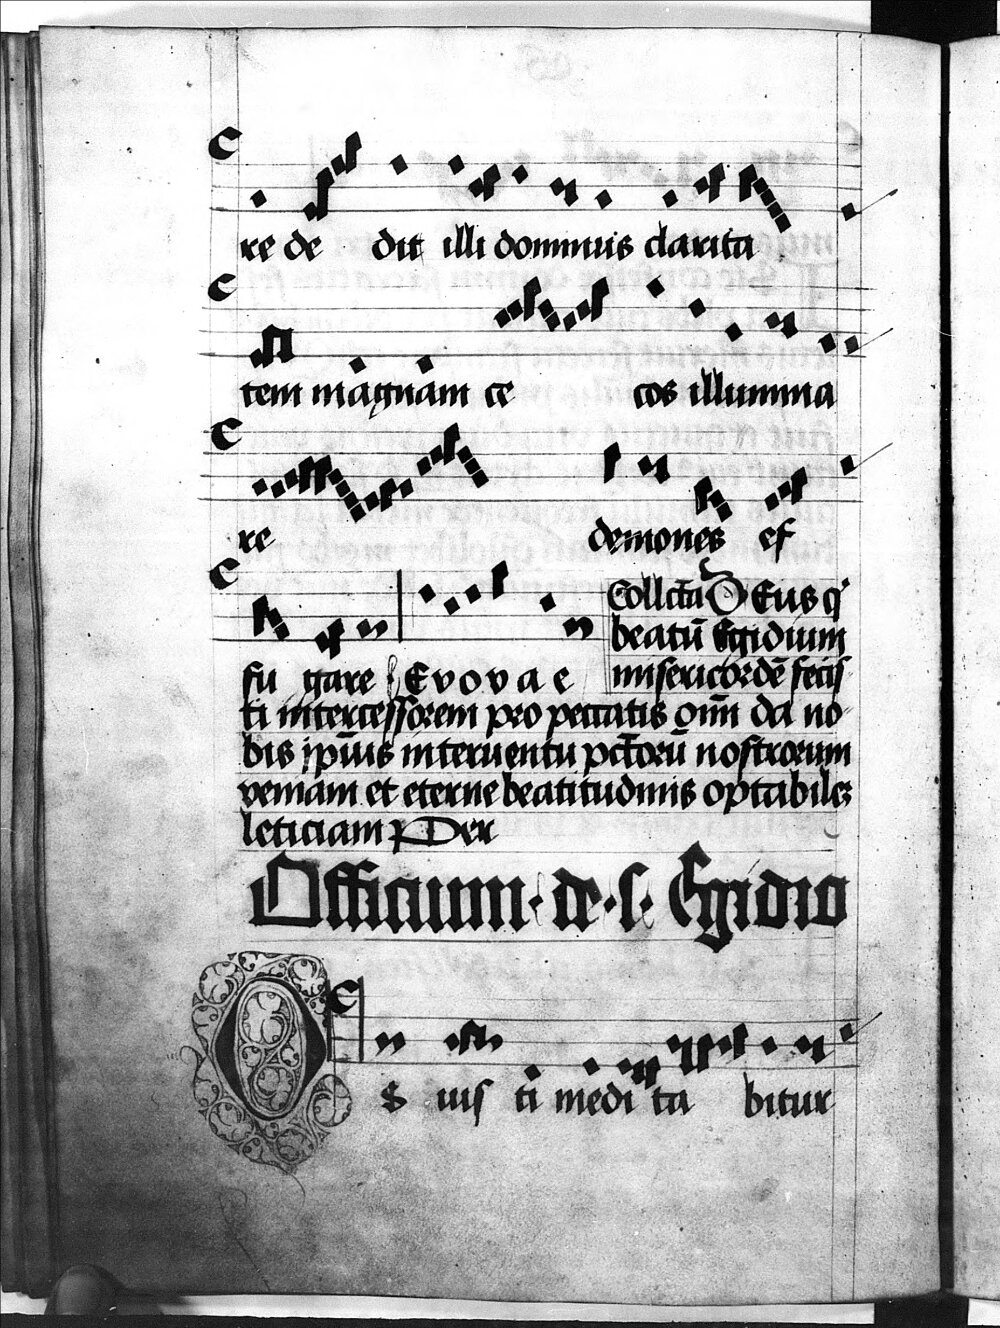 re de dit illi dominus clarita
tem magnam ce cos illumina
re demones ef
fu gare Evovae
Collcta Deus q
beatū Egidium
misericordē fecis
ti intercessorem pro peccatis oīm da no
bis ipīus interuentu pctorū nostrorum
veniam et eterne beatitudinis optabiles
leticiam Per
Officium · de · s · Egidio
Os ius ti medi ta bitur